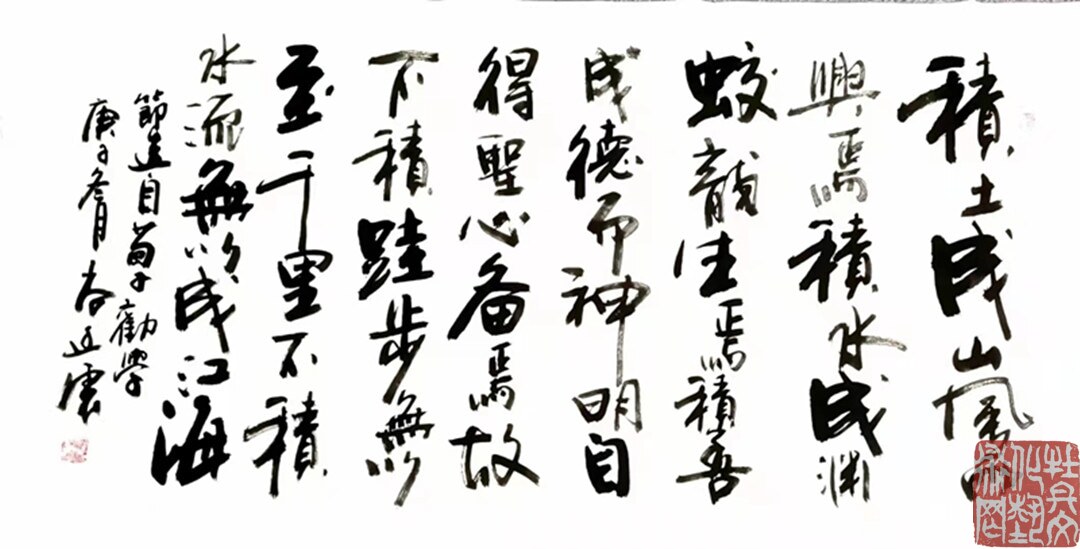 積土成山風雨
興焉積水成渊
蛟龍生焉積善
成德而神明自
得聖心备焉故
不積跬步無以
至千里不積
水流無以成江海
節选自荀子勸學
庚子冬月